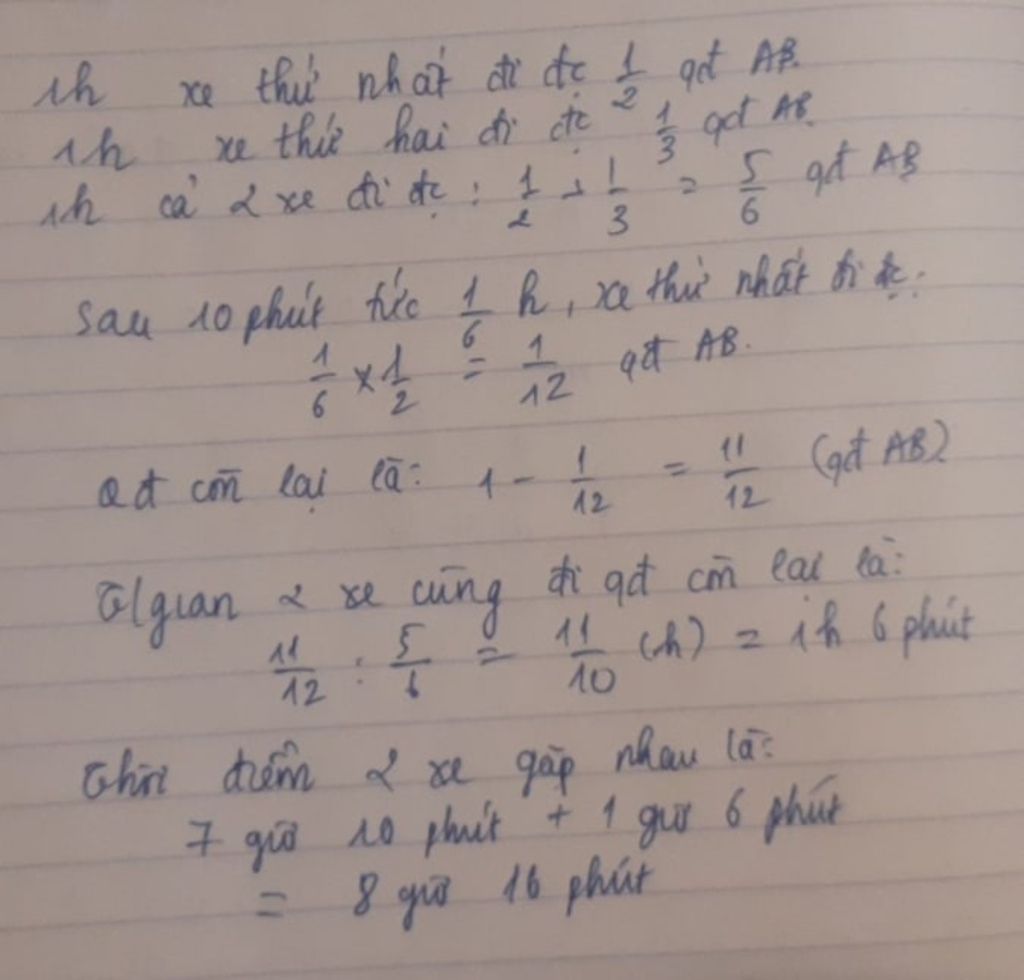 1h xe thứ nhất đi đc 1/2 qđ AB.
1h xe thứ hai đi đc 1/3 qđ AB.
1h cả 2 xe đi đc : 1/2 + 1/3 = 5/6 qđ AB
Sau 10 phút tức 1/6 h, xe thứ nhất đi đc:
1/6 x 1/2 = 1/12 qđ AB.
Qđ còn lại là: 1 - 1/12 = 11/12 (qđ AB)
T/gian 2 xe cùng đi qđ còn lại là:
11/12 : 5/6 = 11/10 (h) = 1h 6 phút
Thời điểm 2 xe gặp nhau là:
7 giờ 10 phút + 1 giờ 6 phút
= 8 giờ 16 phút